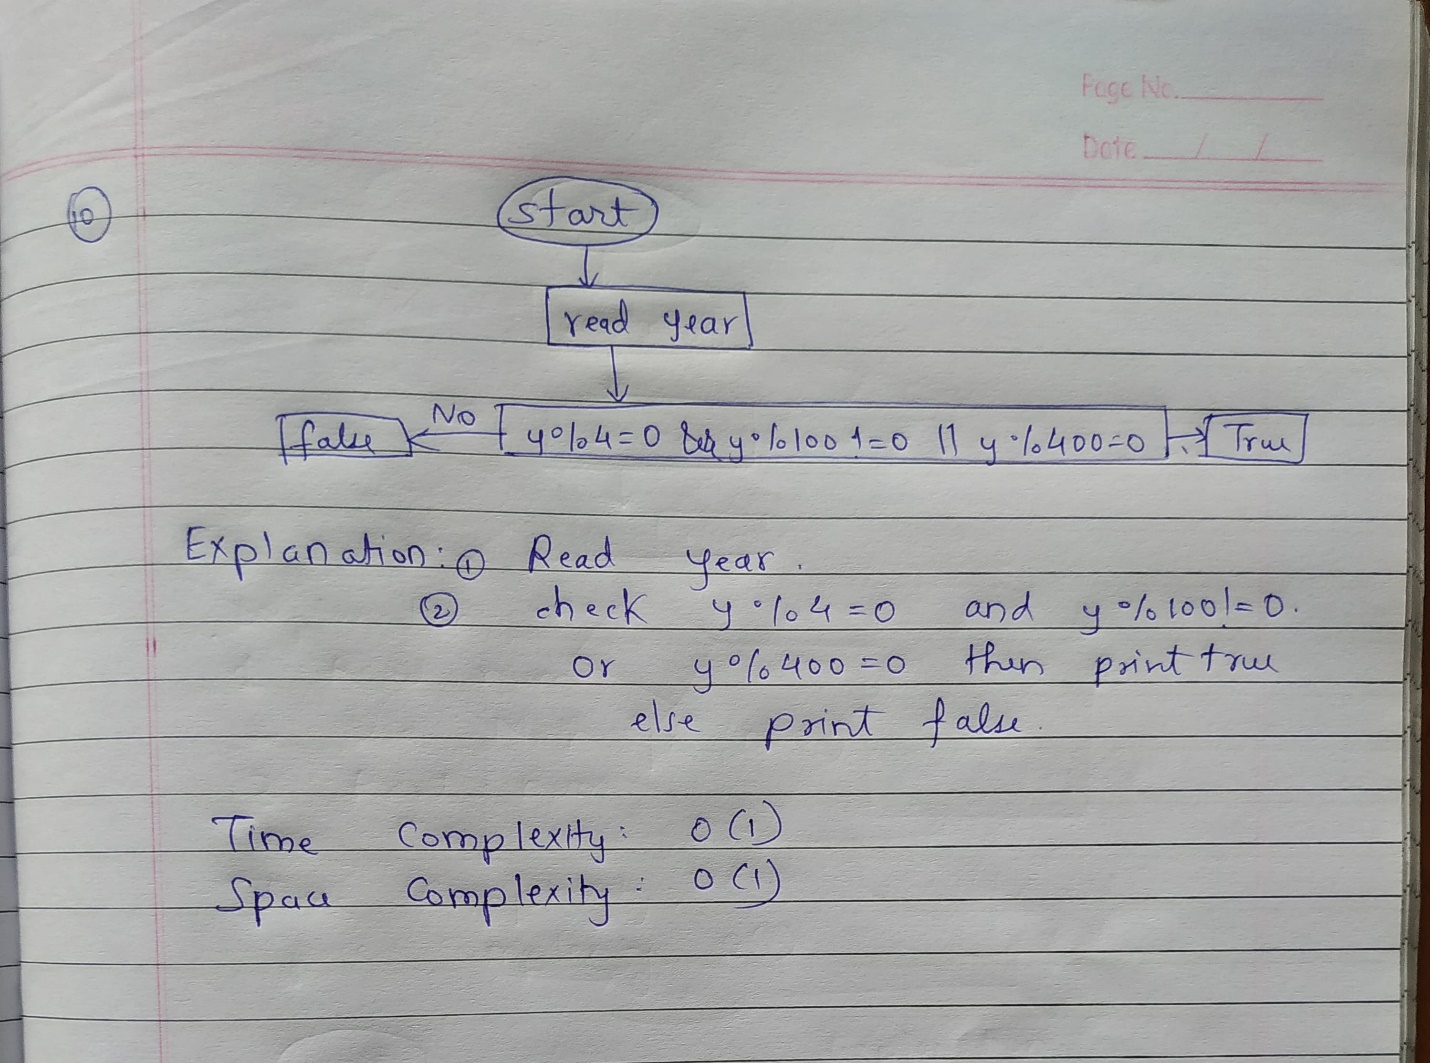 Page No.
Date / /
10
start
read year
false No y%4=0 && y%100!=0 || y%400=0 True
Explanation: ① Read year.
② check y%4=0 and y%100!=0.
or y%400=0 then print true
else print false.
Time Complexity: O(1)
Space Complexity: O(1)